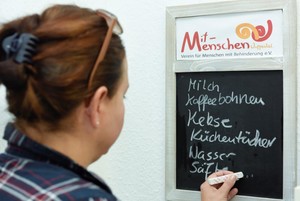 Mit-
Menschen
Verein für Menschen mit Behinderung e.V.
Milch
Kaffeebohnen
Kekse
Küchentücher
Wasser